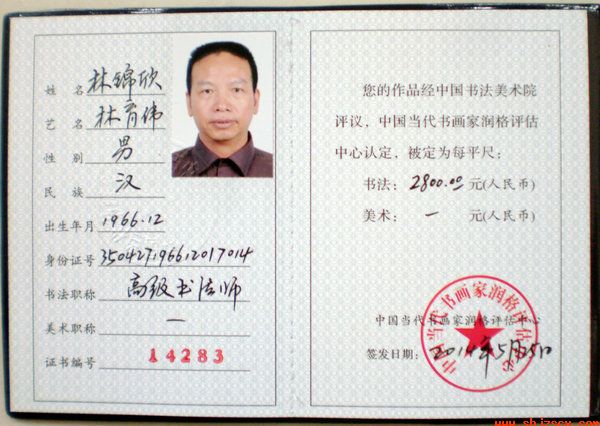 姓名 林锦欣
艺名 林育伟
性别 男
民族 汉
出生年月 1966.12
身份证号 350427196612017014
书法职称 高级书法师
美术职称 一
证书编号 14283
您的作品经中国书法美术院
评议，中国当代书画家润格评估
中心认定，被定为每平尺：
书法：2800.00元(人民币)
美术：一 元(人民币)
中国当代书画家润格评估中心
签发日期：2014年5月25日
中国当代书画家润格评估中心
www.shjzscx.com